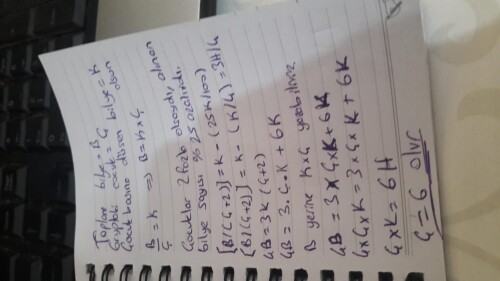 Toplam bilye = B
Gruptaki çocuk = Ç
Çocuk başına düşen bilye = K olsun
B/Ç = K => B = K x Ç
Çocuklar 2 fazla olsaydı, alınan
bilye sayısı %25 azalırdı.
[B/(Ç+2)] = K - (25K/100)
[B/(Ç+2)] = K - (K/4) = 3K/4
4B = 3K(Ç+2)
4B = 3.Ç.K + 6K
B yerine KxÇ yazabiliriz
4B = 3xÇxK+6K
4xÇxK = 3xÇxK + 6K
ÇxK = 6K
Ç = 6 olur